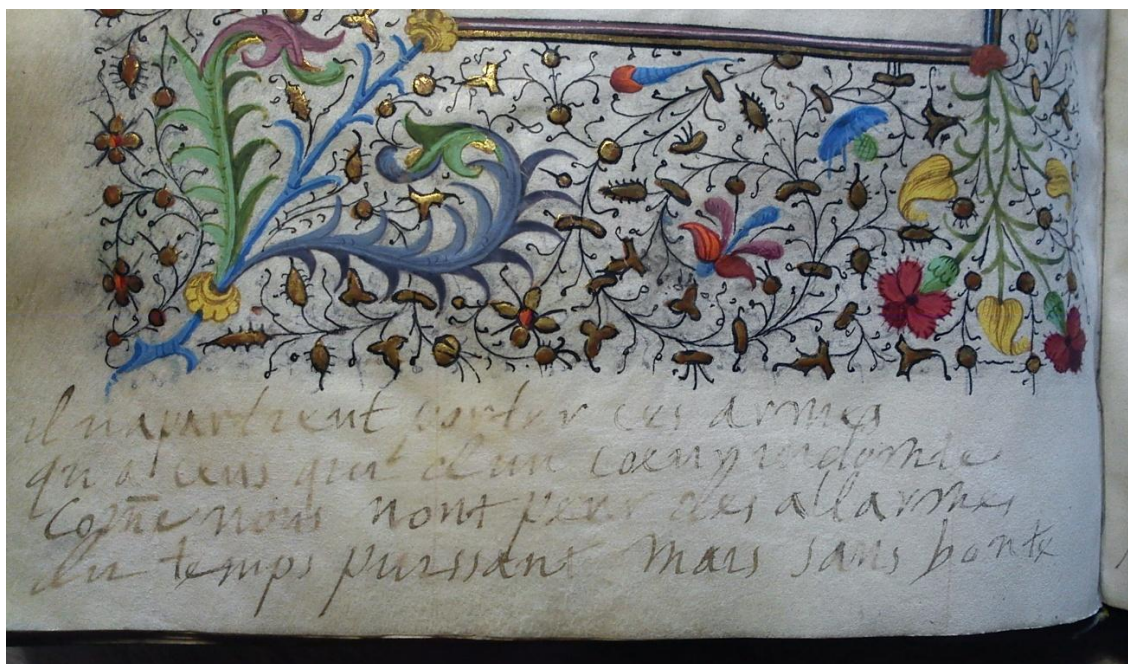 il napartient porter ces armes
qu'a ceus qui d'un coeur indomte
Comē nous nont peur des allarmes
du temps puissant mais sans bonte